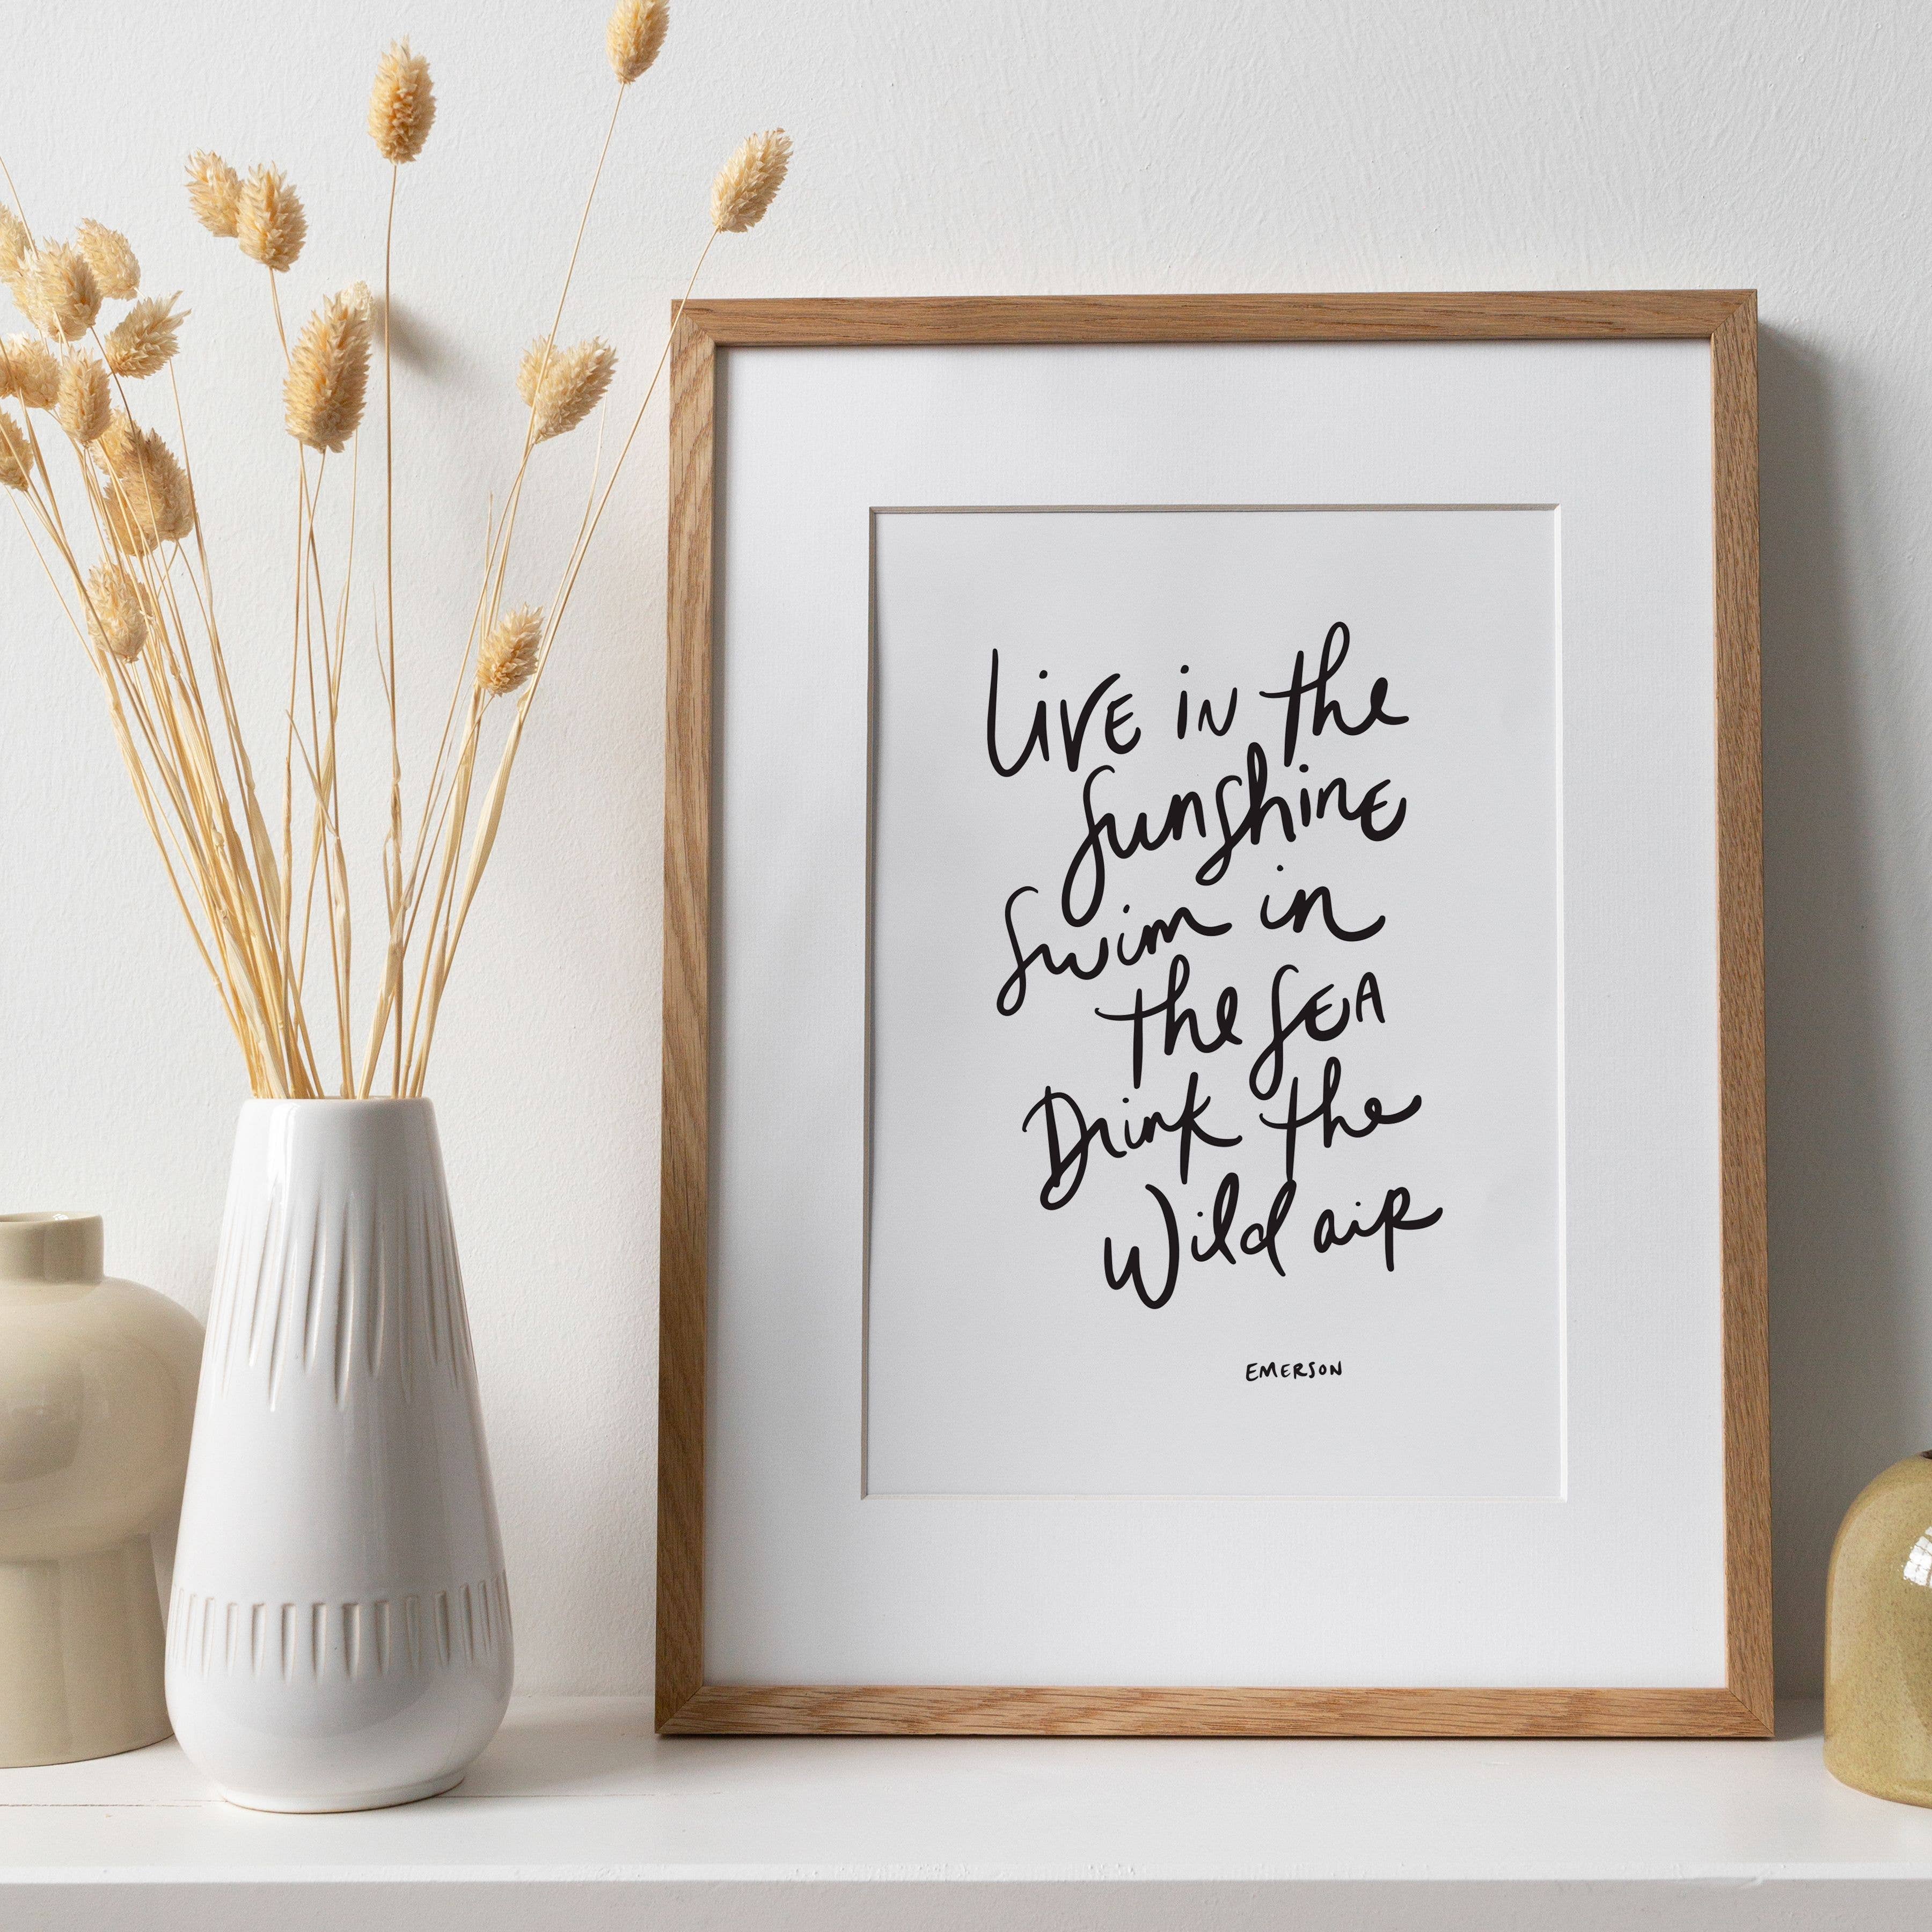 Live in the
Sunshine
Swim in
the SEA
Drink the
Wild air
EMERSON